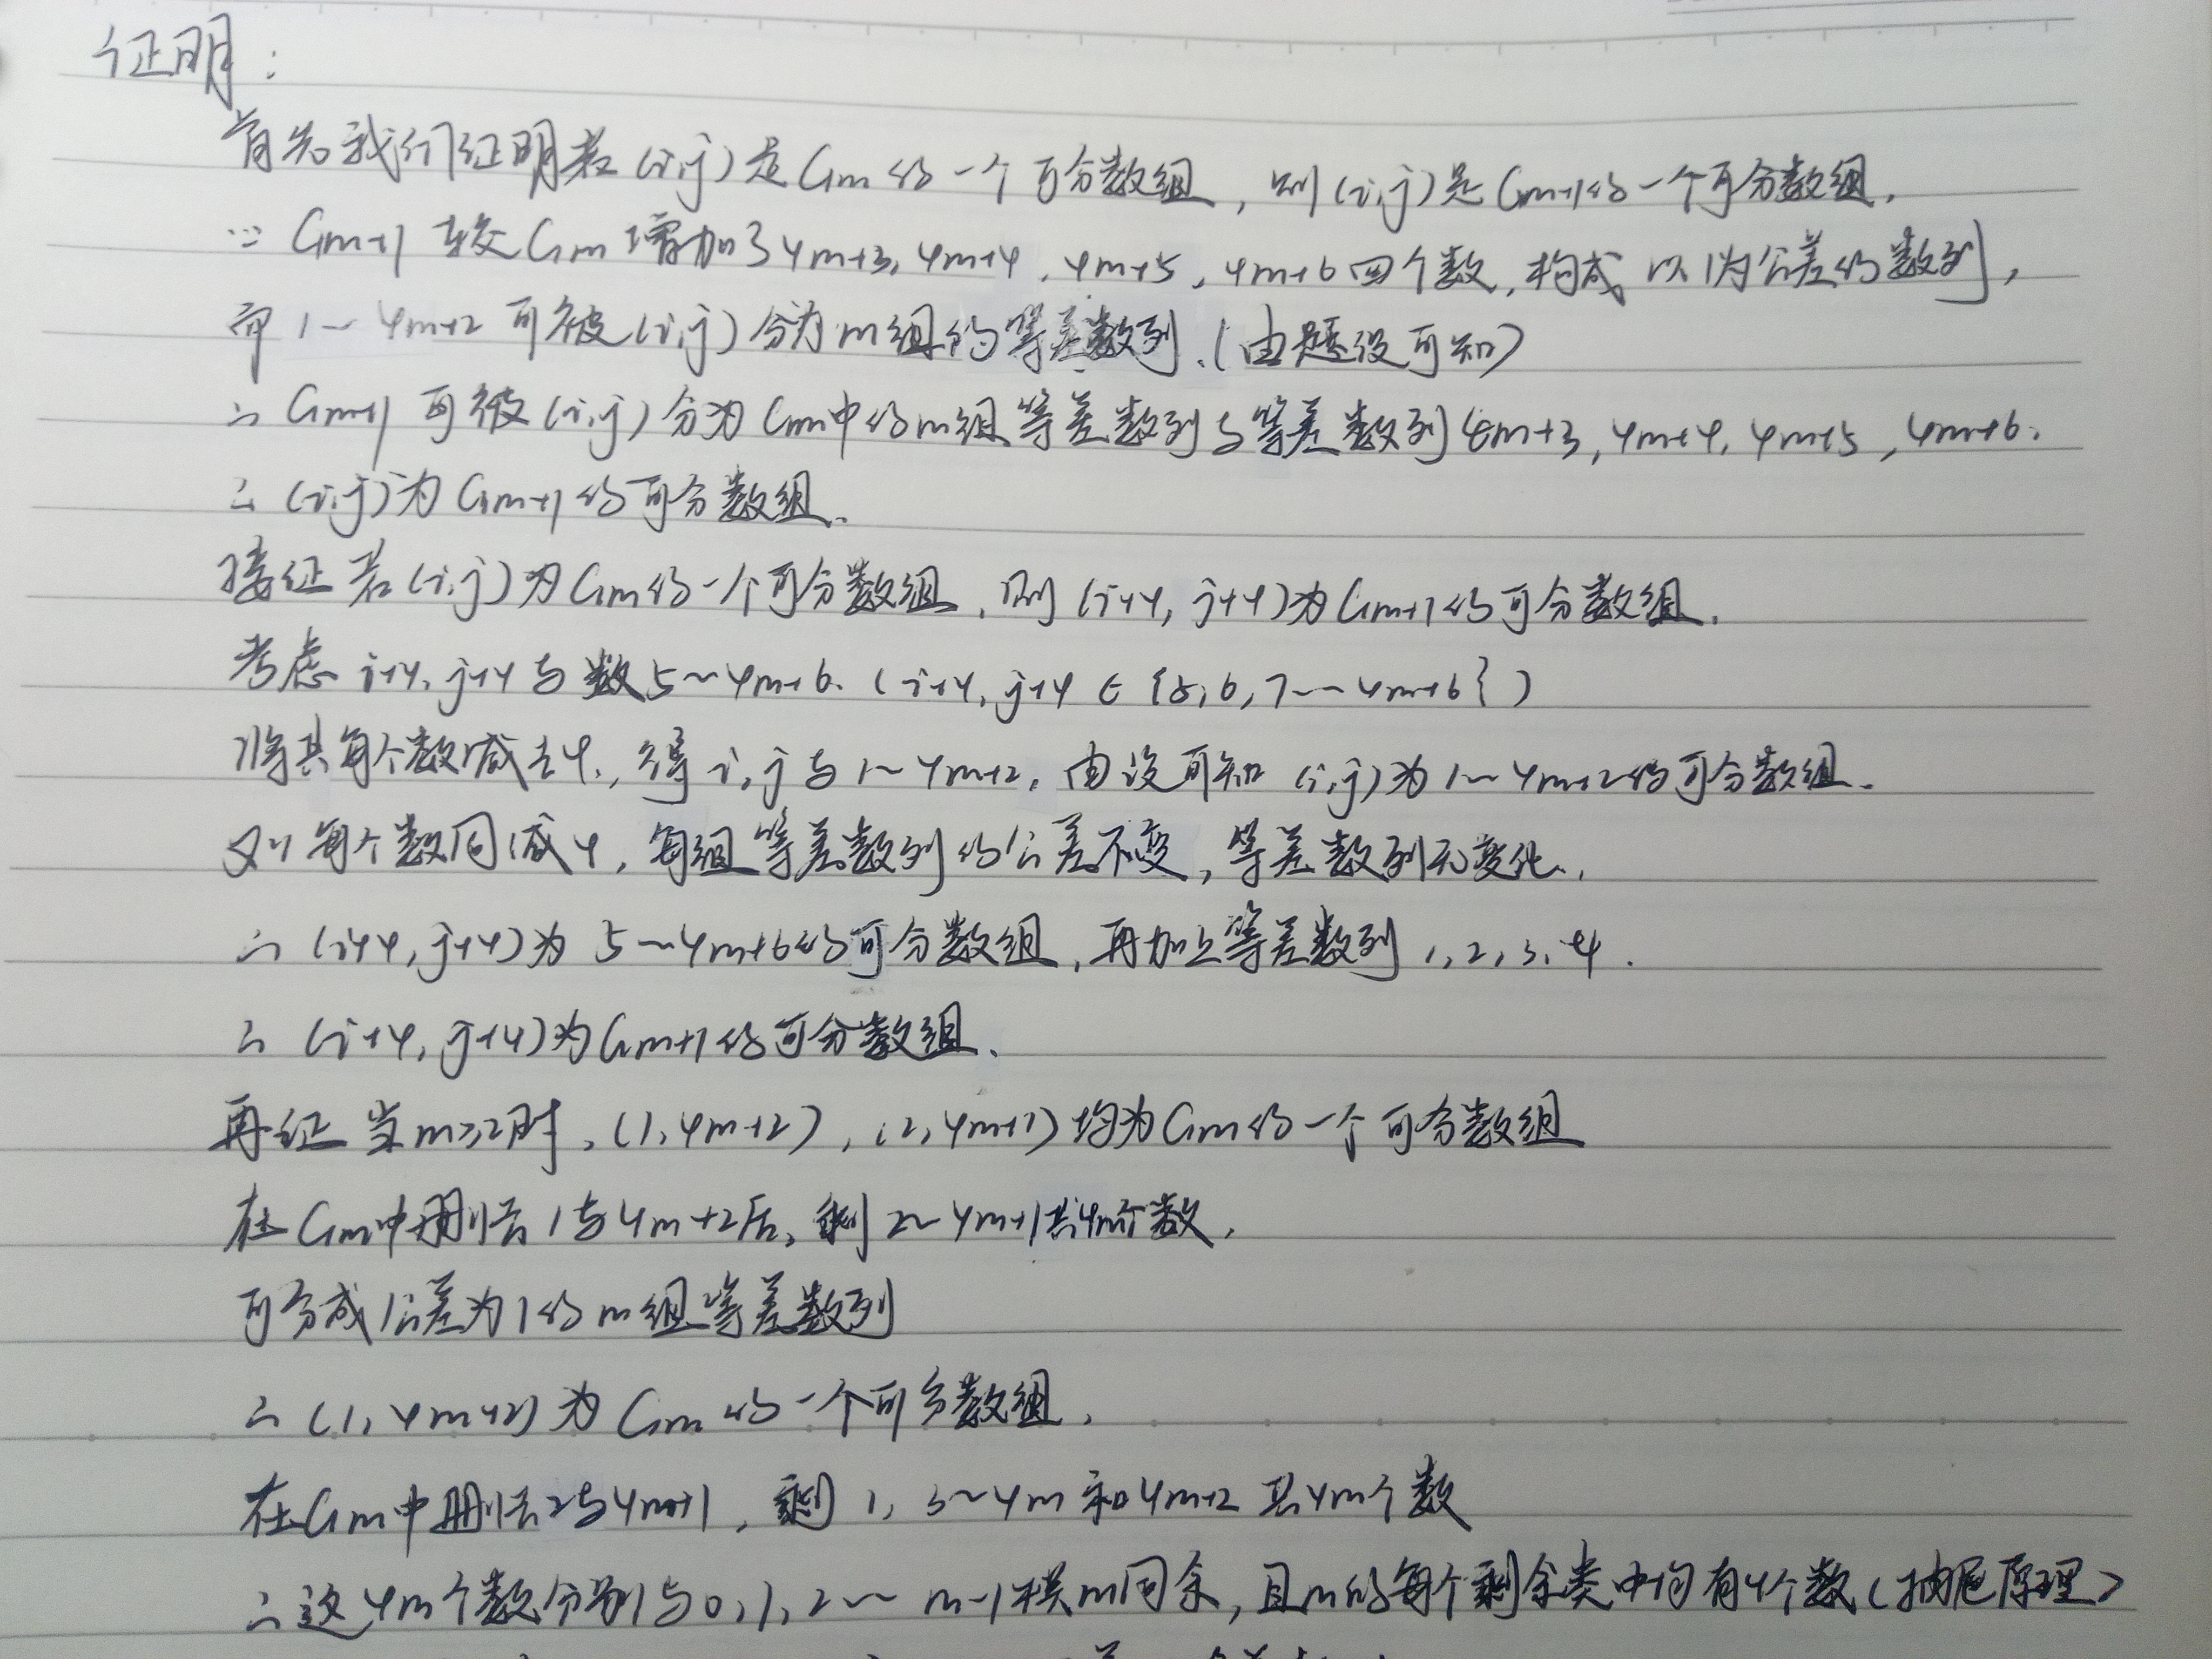 证明：
首先我们证明若(i,j)是Gm的一个可分数组，则(i,j)是Gm+1的一个可分数组.
∵ Gm+1 较Gm增加了4m+3, 4m+4, 4m+5, 4m+6四个数，构成以1为公差的数列，
而1~4m+2可被(i,j)分为m组的等差数列.(由题设可知)
∴ Gm+1可被(i,j)分为Gm中的m组等差数列与等差数列4m+3, 4m+4, 4m+5, 4m+6.
∴ (i,j)为Gm+1的可分数组.
接证若(i,j)为Gm的一个可分数组，则(i+4, j+4)为Gm+1的可分数组.
考虑i+4, j+4与数5~4m+6. (i+4, j+4∈{5,6,7~4m+6})
将其每个数减去4, 得i,j与1~4m+2, 由设可知(i,j)为1~4m+2的可分数组.
又∵每个数同减4, 每组等差数列的公差不变，等差数列无变化.
∴ (i+4, j+4)为5~4m+6的可分数组，再加上等差数列1,2,3,4.
∴ (i+4, j+4)为Gm+1的可分数组.
再证当m≥2时, (1,4m+2), (2,4m+1)均为Gm的一个可分数组
在Gm中删去1与4m+2后，剩2~4m+1共4m个数,
可分成公差为1的m组等差数列
∴ (1,4m+2)为Gm的一个可分数组.
在Gm中删去2与4m+1, 剩1, 3~4m和4m+2共4m个数
∴这4m个数分别与0,1,2~m-1模m同余, 且m的每个剩余类中均有4个数(抽屉原理)